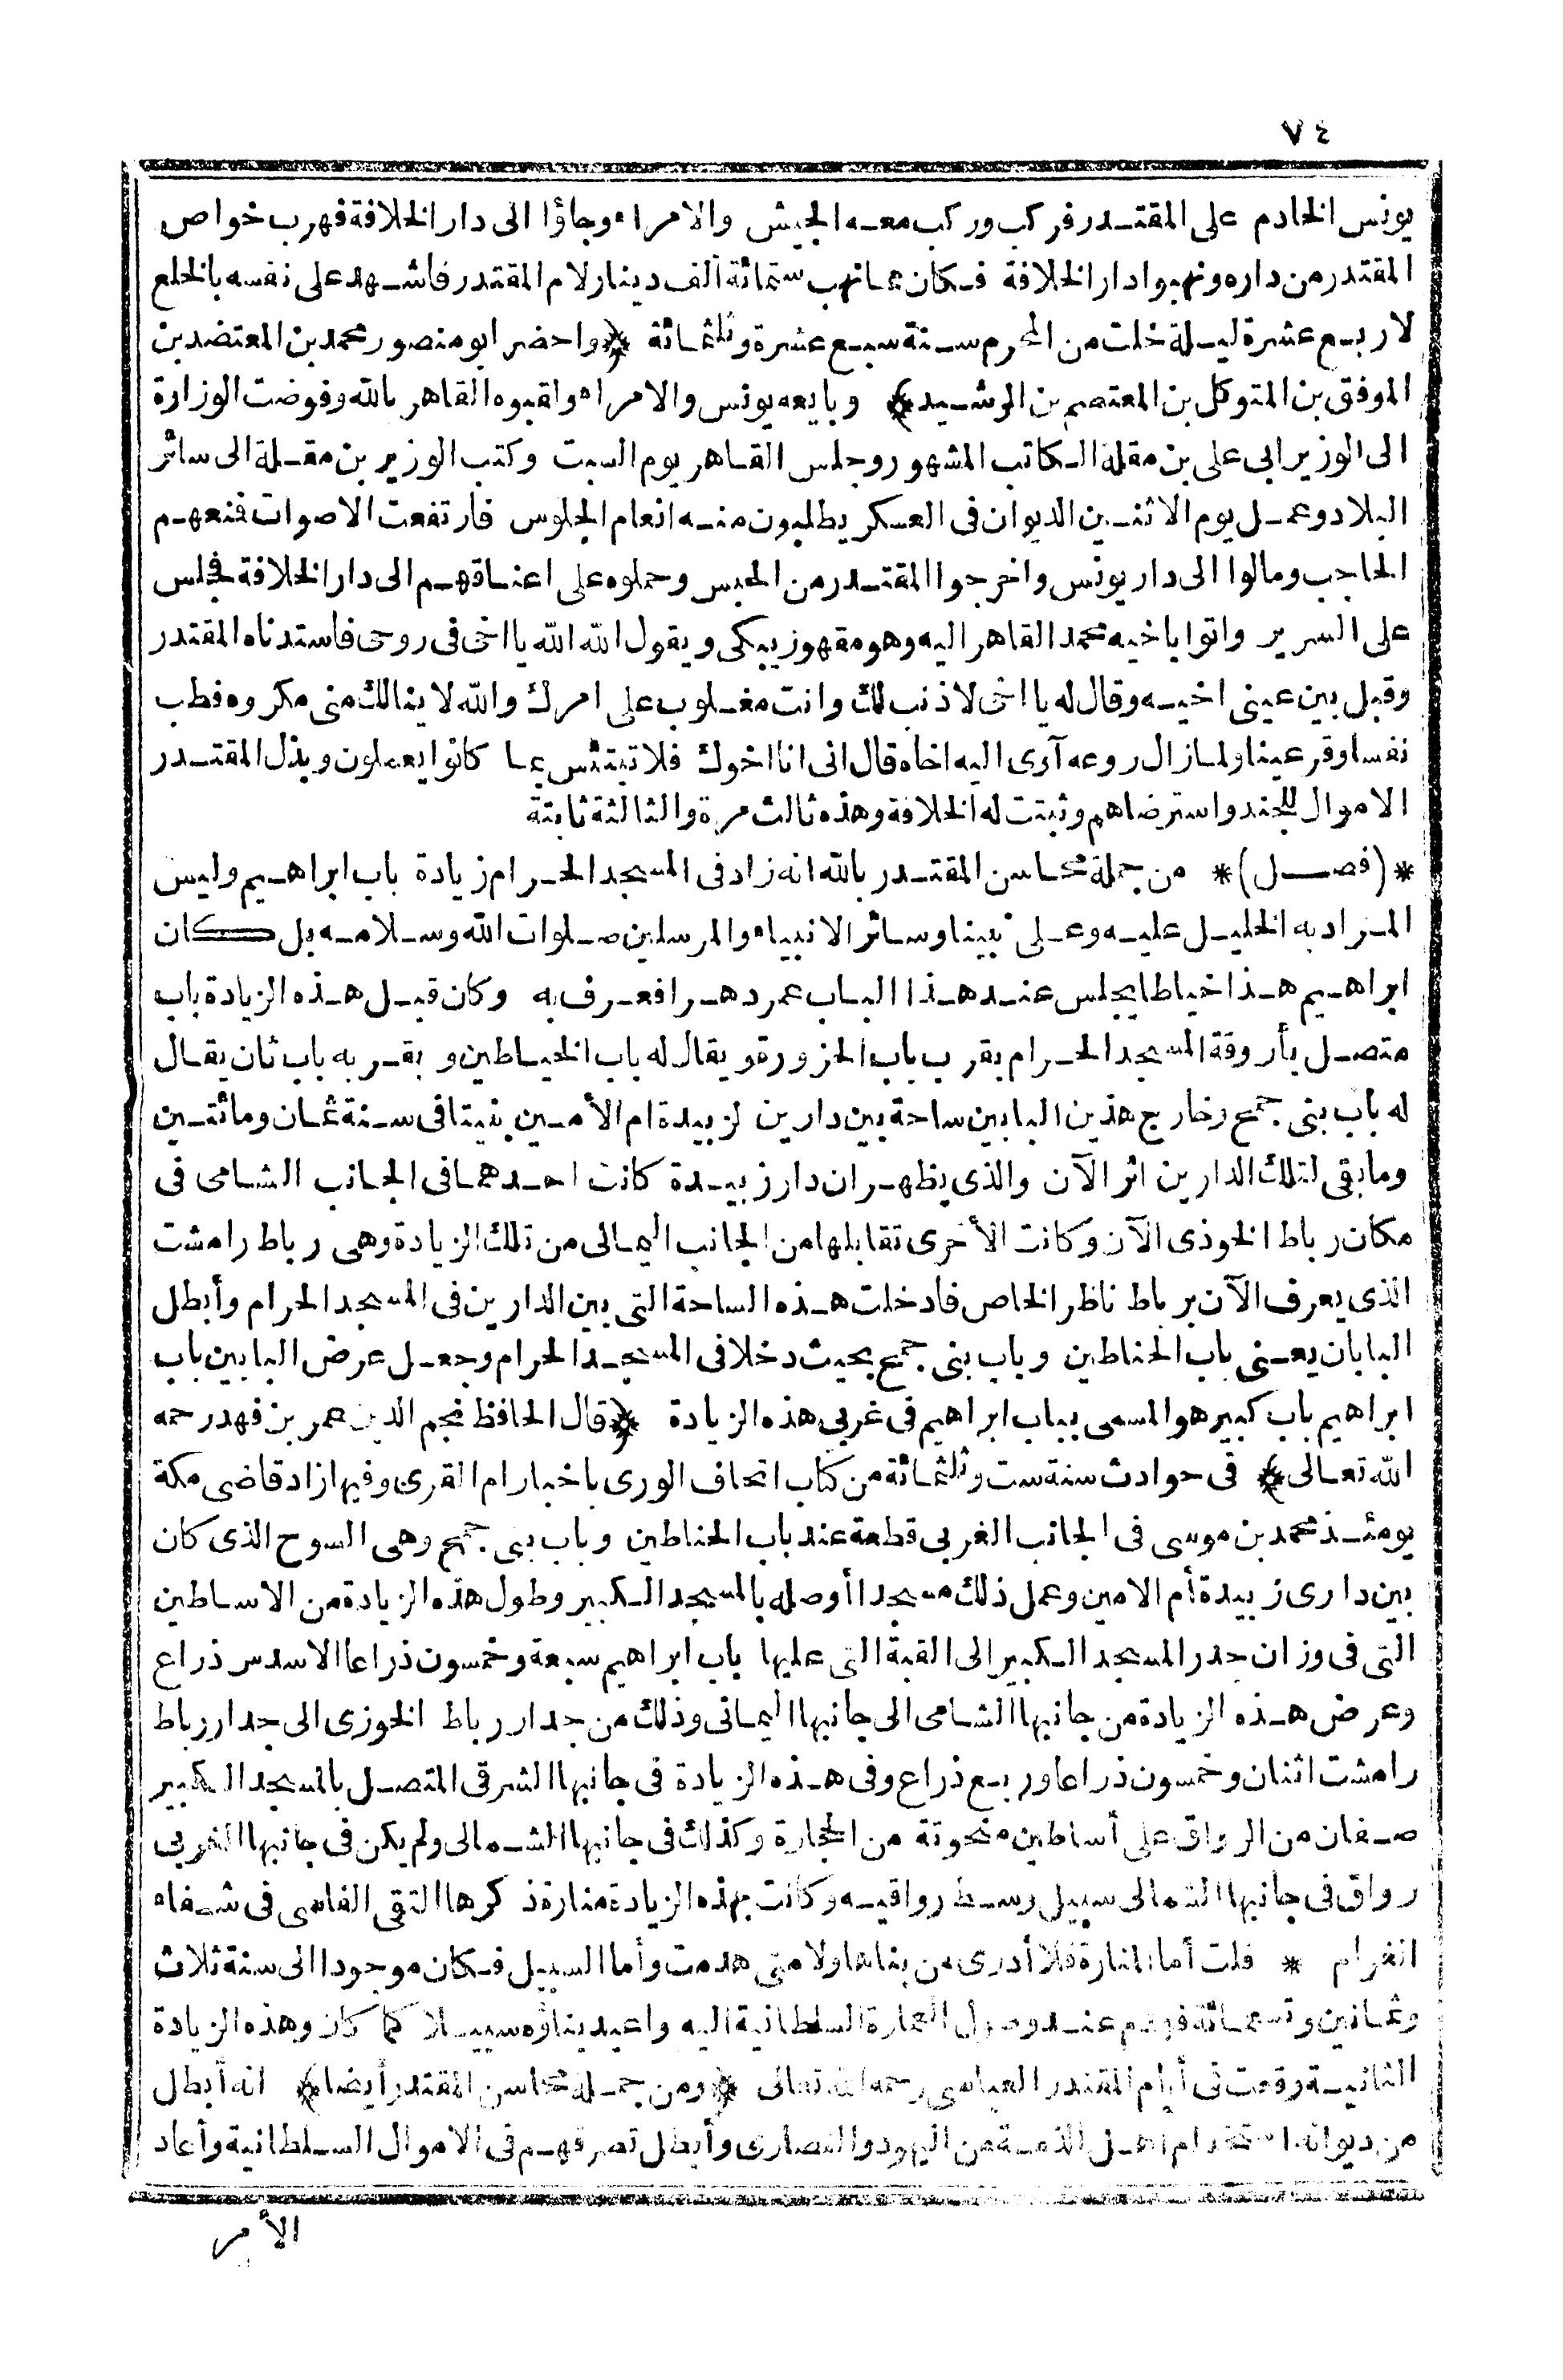 ٧٤
يونس الخادم على المقتدر فركب وركب معه الجيش والامراء وجاؤا الى دار الخلافة فهرب خواص
المقتدر من داره ونهبوا دار الخلافة فكان مما نهب ستمائة ألف دينار لام المقتدر فاشهد على نفسه بالخلع
لاربع عشرة ليلة خلت من المحرم سنة سبع عشرة وثلثمائة ﴿واحضر ابو منصور محمد بن المعتضد بن
الموفق بن المتوكل بن المعتصم بن الرشيد﴾ وبايعه يونس والامراء ولقبوه القاهر بالله وفوضت الوزارة
الى الوزير ابى على بن مقلة الكاتب المشهور وجلس القاهر يوم السبت وكتب الوزير بن مقلة الى سائر
البلاد وعمل يوم الاثنين الديوان فى العسكر يطلبون منه انعام الجلوس فارتفعت الاصوات فنعهم
الحاجب ومالوا الى دار يونس واخرجوا المقتدر من الحبس وحملوه على اعناقهم الى دار الخلافة فجلس
على السرير واتوا باخيه محمد القاهر اليه وهو مقهور يبكى ويقول الله الله يا اخى فى روحى فاستدناه المقتدر
وقبل بين عينى اخيه وقال له يا اخى لا ذنب لك وانت مغلوب على امرك والله لا ينالك منى مكروه فطب
نفسا وقر عينا ولما زال روعه آوى اليه اخاه قال انى انا اخوك فلا تبتئس بما كانوا يعملون وبذل المقتدر
الاموال للجند واسترضاهم وثبتت له الخلافة وهذه ثالث مرة والثالثة ثابتة
*(فصل)* من جملة محاسن المقتدر بالله انه زاد فى المسجد الحرام زيادة باب ابراهيم وليس
المراد به الخليل عليه وعلى نبينا وسائر الانبياء والمرسلين صلوات الله وسلامه بل كان
ابراهيم هذا خياطا يجلس عند هذا الباب عمر دهرا فعرف به وكان قبل هذه الزيادة باب
متصل بأروقة المسجد الحرام بقرب باب الحزورة ويقال له باب الخياطين وبقربه باب ثان يقال
له باب بنى جمح وخارج هذين البابين ساحة بين دارين لزبيدة ام الأمين بنيتا فى سنة ثمان ومائتين
وما بقى لتلك الدارين اثر الآن والذى يظهر ان دار زبيدة كانت احدهما فى الجانب الشامى فى
مكان رباط الخوذى الآن وكانت الأخرى تقابلها من الجانب اليمانى من تلك الزيادة وهى رباط رامشت
الذى يعرف الآن برباط ناظر الخاص فادخلت هذه الساحة التى بين الدارين فى المسجد الحرام وأبطل
البابان يعنى باب الحناطين وباب بنى جمح بحيث دخلا فى المسجد الحرام وجعل عرض البابين باب
ابراهيم باب كبير هو المسمى بباب ابراهيم فى غربى هذه الزيادة ﴿قال الحافظ نجم الدين عمر بن فهد رحمه
الله تعالى﴾ فى حوادث سنة ست وثلثمائة من كتاب اتحاف الورى باخبار ام القرى وفيها زاد قاضى مكة
يومئذ محمد بن موسى فى الجانب الغربى قطعة عند باب الحناطين وباب بنى جمح وهى السوح الذى كان
بين دارى زبيدة أم الامين وعمل ذلك مسجدا أوصله بالمسجد الكبير وطول هذه الزيادة من الاساطين
التى فى وزان جدر المسجد الكبير الى القبة التى عليها باب ابراهيم سبعة وخمسون ذراعا الا سدس ذراع
وعرض هذه الزيادة من جانبها الشامى الى جانبها اليمانى وذلك من جدار رباط الخوزى الى جدار رباط
رامشت اثنان وخمسون ذراعا وربع ذراع وفى هذه الزيادة فى جانبها الشرقى المتصل بالمسجد الكبير
صفان من الرواق على أساطين منحوتة من الحجارة وكذلك فى جانبها الشمالى ولم يكن فى جانبها الغربى
رواق فى جانبها الشمالى سبيل وسط رواقيه وكانت بهذه الزيادة منارة ذكرها التقى الفاسى فى شفاء
الغرام * قلت أما المنارة فلا أدرى من بناها ولا متى هدمت وأما السبيل فكان موجودا الى سنة ثلاث
وثمانين وتسعمائة فهدم عند وصول العمارة السلطانية اليه واعيد بناؤه سبيلا كما كان وهذه الزيادة
الثانية وقعت فى أيام المقتدر العباسى رحمه الله تعالى ﴿ومن جملة محاسن المقتدر أيضا﴾ انه أبطل
من ديوانه استخدام اهل الذمة من اليهود والنصارى وأبطل تصرفهم فى الاموال السلطانية وأعاد
الأمر